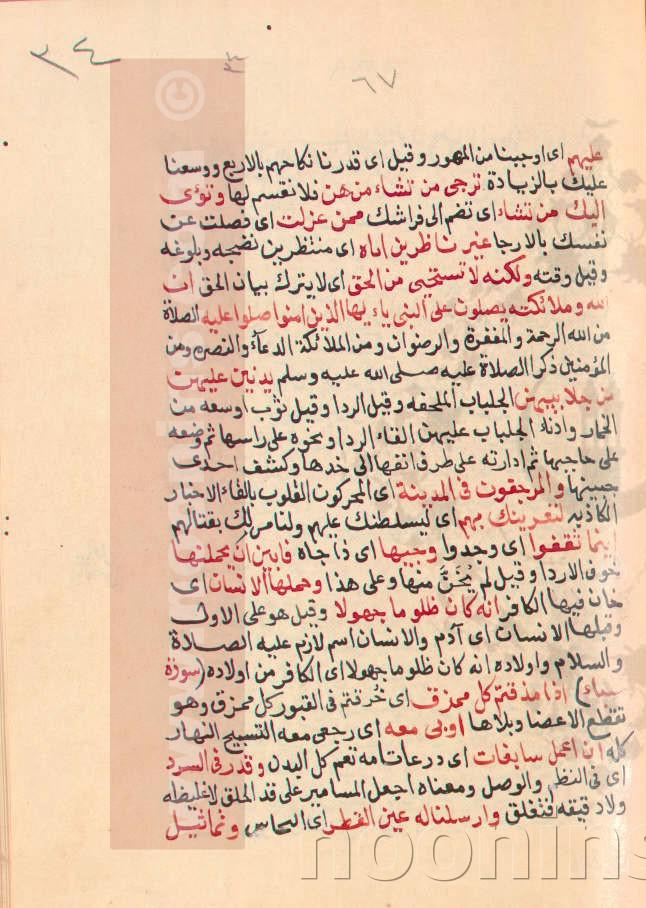 ٣٤
٦٧
عليهم اى اوجبنا من المهور وقيل اى قدرنا نكاحهم بالاربع ووسعنا
عليك بالزيادة ترجى من تشاء منهن فلا نقسم لها وتؤى
اليك من تشاء اى تضم الى فراشك ممن عزلت اى فصلت عن
نفسك بالارجا غير ناظرين اناه اى منتظرين نضجه وبلوغه
وقيل وقته ولكنه لا تستحيى من الحق اى لا يترك بيان الحق ان
الله وملائكته يصلون على النبى ياءيها الذين امنوا صلوا عليه الصلاة
من الله الرحمة والمغفرة والرضوان ومن الملائكة الدعاء والنصره ومن
المؤمنين ذكر الصلاة عليه صلى الله عليه وسلم يدنين عليهن
من جلابيبهن الجلباب الملحفه وقيل الردا وقيل ثوب اوسعه من
الخمار وادناء الجلباب عليهن القاء الردا ونحوه على راسها ثم وضعه
على حاجبيها ثم ادارته على طرف انفها الى خدها وكشف احدى
جبينها والمرجفون فى المدينة اى المحركون القلوب بالقاء الاخبار
الكاذبه لنغرينك بهم اى ليسلطنك عليهم ولنامرلك بقتالهم
اينما ثقفوا اى وجدوا وجيها اى ذا جاه فابين ان يحملنها
خوف الاردا وقيل لم يخن منها وعلى هذا وحملها الانسان اى
خان فيها الكافر انه كان ظلوما جهولا وقيل هو على الاول
وقبلها الانسان اى آدم والانسان اسم لازم عليه الصلاة
والسلام واولاده انه كان ظلوما جهولا اى الكافر من اولاده (سورة
سباء) اذا مذقتم كل ممزق اى خرقتم فى القبور كل ممزق وهو
تقطع الاعضا وبلاها اوبى معه اى رجعى معه التسبيح النهار
كله ان اعمل سابغات اى درعات امه تعم كل البدن وقدر فى السرد
اى فى النظر والوصل ومعناه اجعل المسامير على قد الحلق لا غليظه
ولا دقيقه فتغلق وارسلنا له عين القطر اى النحاس وتماثيل
noonins